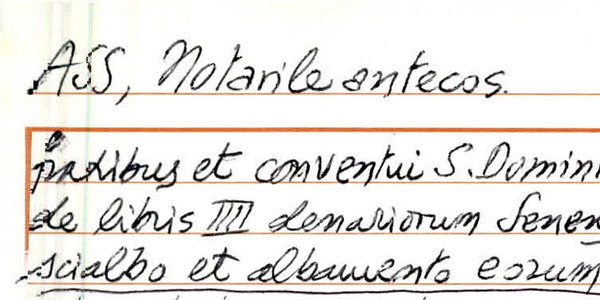 ASS, Notarile antecos.
fratribus et conventui S. Domini
de libris IIII denariorum Senen
scialbo et albamento eorum